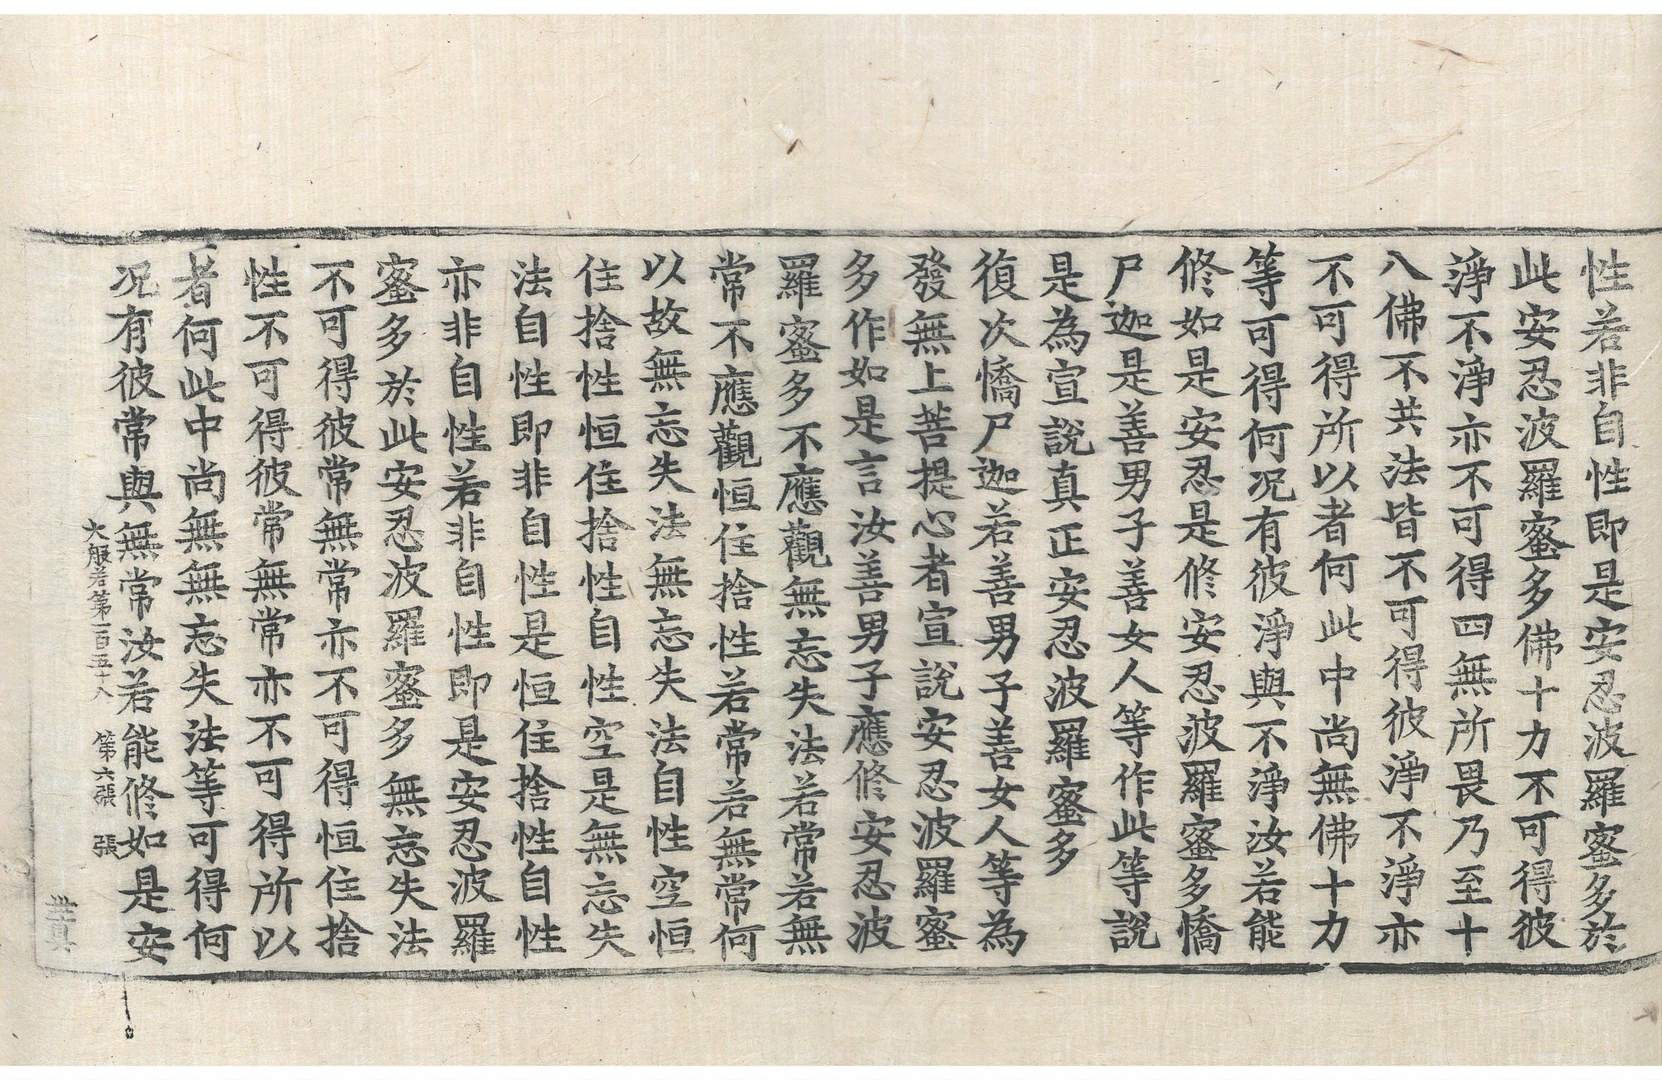 性若非自性即是安忍波羅蜜多於
此安忍波羅蜜多佛十力不可得彼
淨不淨亦不可得四無所畏乃至十
八佛不共法皆不可得彼淨不淨亦
不可得所以者何此中尚無佛十力
等可得何况有彼淨與不淨汝若能
修如是安忍是修安忍波羅蜜多憍
尸迦是善男子善女人等作此等說
是為宣說真正安忍波羅蜜多
復次憍尸迦若善男子善女人等為
發無上菩提心者宣說安忍波羅蜜
多作如是言汝善男子應修安忍波
羅蜜多不應觀無忘失法若常若無
常不應觀恒住捨性若常若無常何
以故無忘失法無忘失法自性空恒
住捨性恒住捨性自性空是無忘失
法自性即非自性是恒住捨性自性
亦非自性若非自性即是安忍波羅
蜜多於此安忍波羅蜜多無忘失法
不可得彼常無常亦不可得恒住捨
性不可得彼常無常亦不可得所以
者何此中尚無無忘失法等可得何
况有彼常與無常汝若能修如是安
大般若第一百五十八 第六張 張